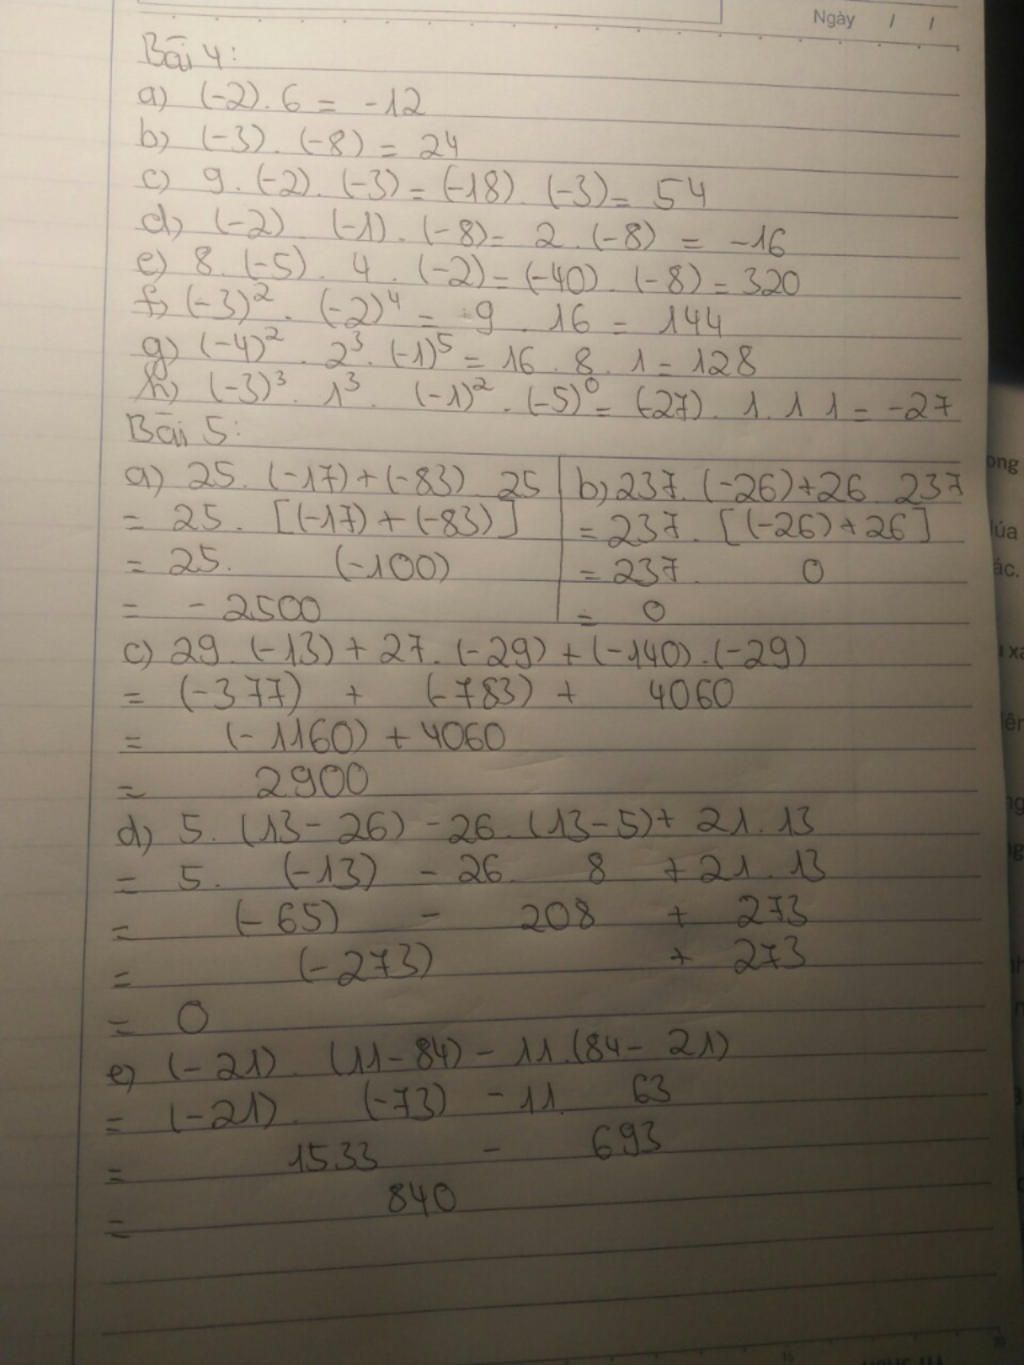 Ngày / /
Bài 4:
a) (-2). 6 = -12
b) (-3) . (-8) = 24
c) 9. (-2). (-3) = (-18). (-3) = 54
d) (-2) (-1). (-8) = 2. (-8) = -16
e) 8. (-5). 4. (-2) = (-40). (-8) = 320
f) (-3)². (-2)⁴ = 9. 16 = 144
g) (-4)². 2³. (-1)⁵ = 16. 8. 1 = 128
h) (-3)³. 1³. (-1)². (-5)⁰ = (-27). 1. 1 1 = -27
Bài 5:
a) 25. (-17) + (-83) 25
= 25. [(-17) + (-83)]
= 25. (-100)
= -2500
b) 237. (-26) + 26 237
= 237. [(-26) + 26]
= 237. 0
= 0
c) 29. (-13) + 27. (-29) + (-140). (-29)
= (-377) + (-783) + 4060
= (-1160) + 4060
= 2900
d) 5. (13 - 26) - 26. (13 - 5) + 21. 13
= 5. (-13) - 26. 8 + 21. 13
= (-65) - 208 + 273
= (-273) + 273
= 0
e) (-21). (11 - 84) - 11. (84 - 21)
= (-21). (-73) - 11. 63
= 1533 - 693
= 840